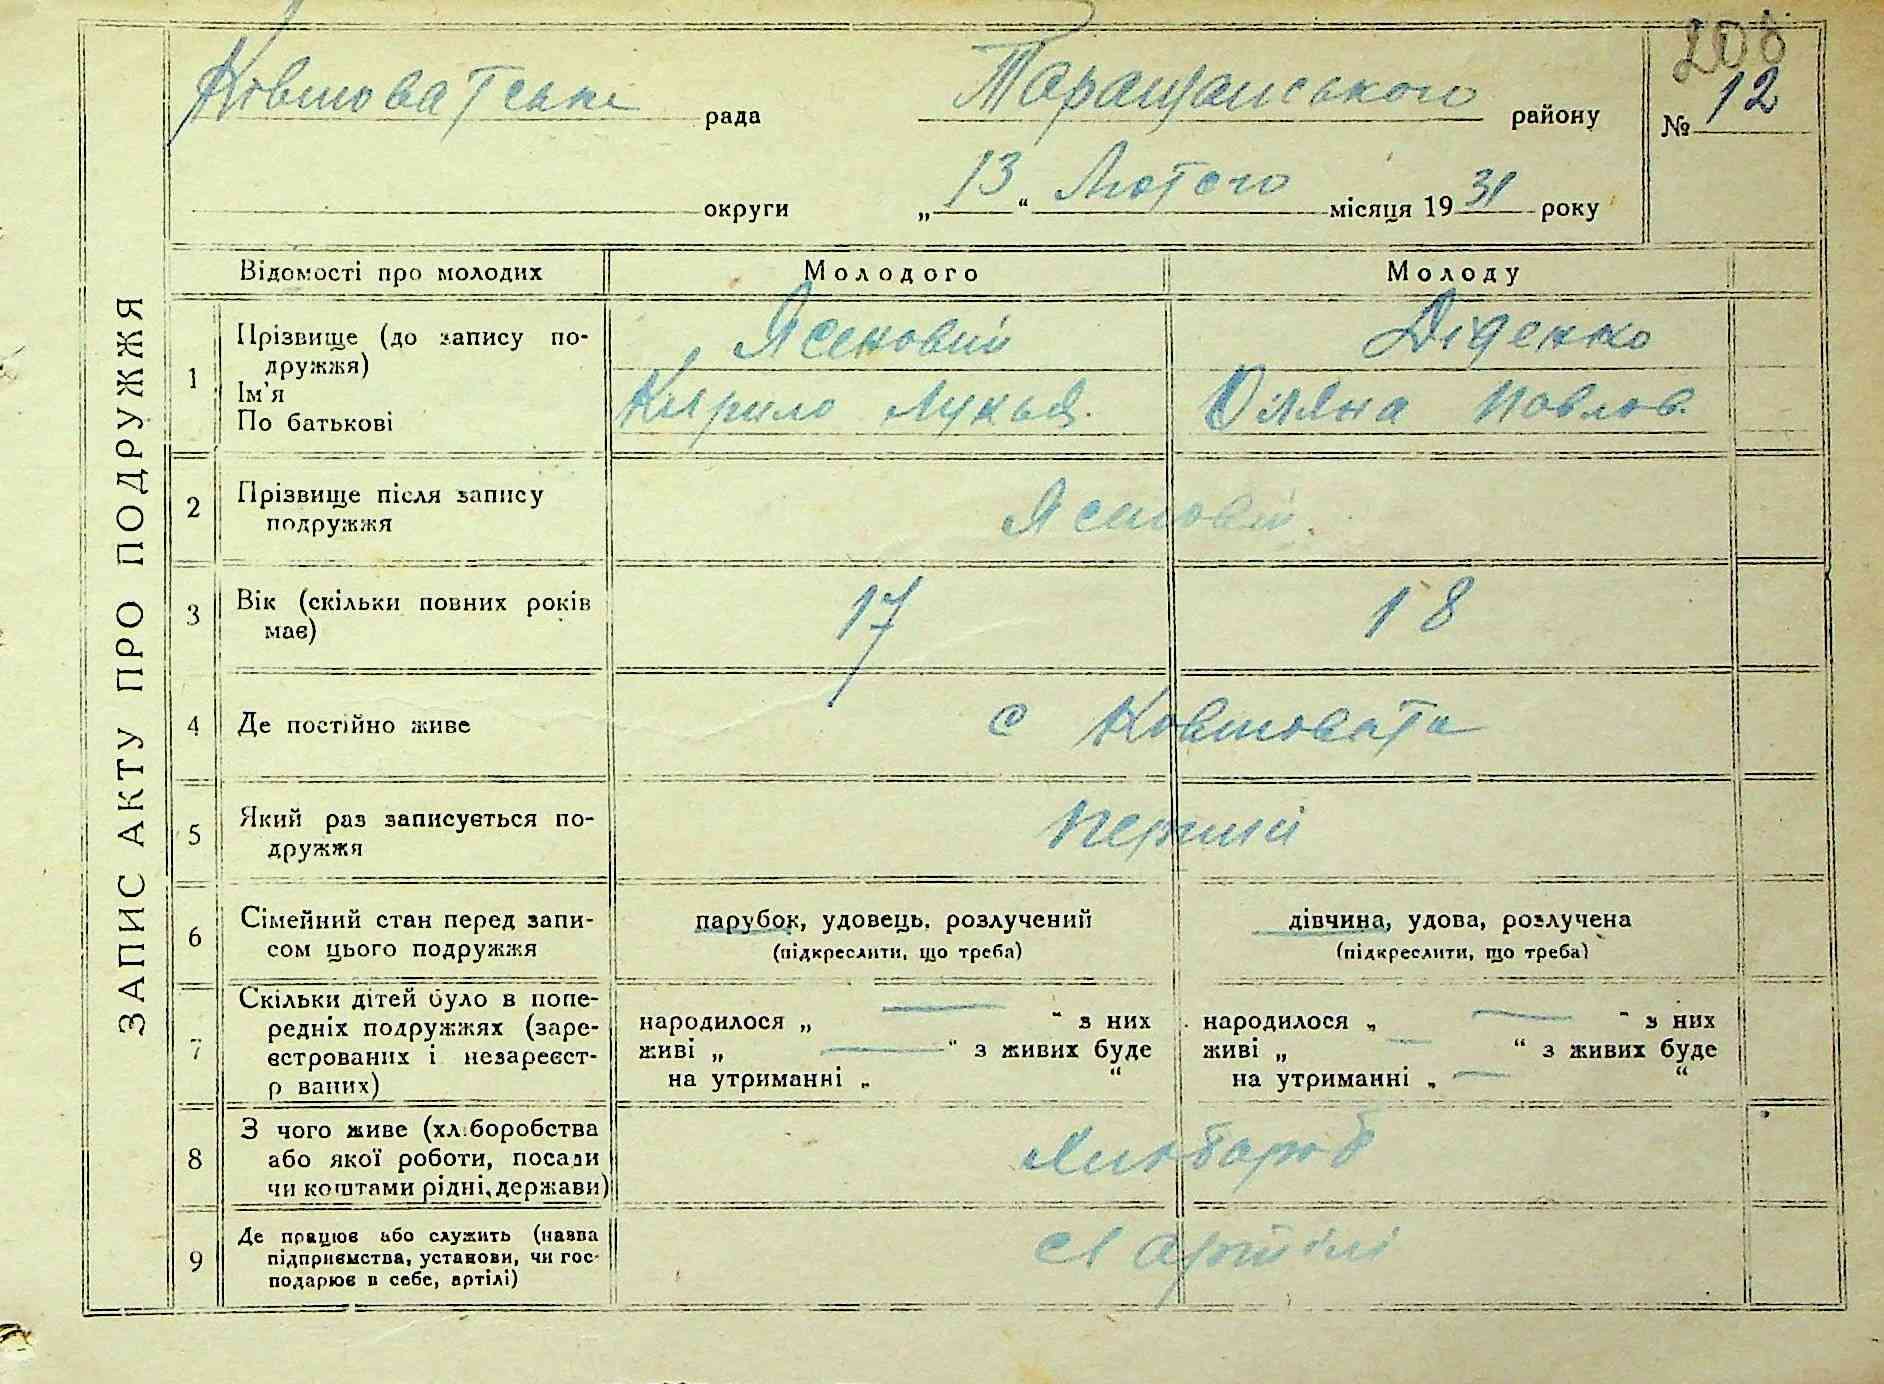 208
Ковшоватська рада Таращанського району № 12
округи „13“ Лютого місяця 1931 року
ЗАПИС АКТУ ПРО ПОДРУЖЖЯ
Відомості про молодих Молодого Молоду
1 Прізвище (до запису по-
дружжя) Ясеновий Діденко
Ім'я
По батькові Кирило Лукья. Оляна Павлов.
2 Прізвище після запису
подружжя Ясеновий.
3 Вік (скільки повних років
має) 17 18
4 Де постійно живе с Ковшовата
5 Який раз записується по-
дружжя перший
6 Сімейний стан перед запи-
сом цього подружжя
парубок, удовець, розлучений дівчина, удова, розлучена
(підкреслити, що треба) (підкреслити, що треба)
7 Скільки дітей було в попе-
редніх подружжях (заре-
єстрованих і незареєст-
р ваних)
народилося „ — “ з них народилося „ — “ з них
живі „ — “ з живих буде живі „ — “ з живих буде
на утриманні „ “ на утриманні „ — “
8 З чого живе (хліборобства
або якої роботи, посади
чи коштами рідні, держави)
9 Де працює або служить (назва
підприємства, установи, чи гос-
подарює в себе, артілі) артілі